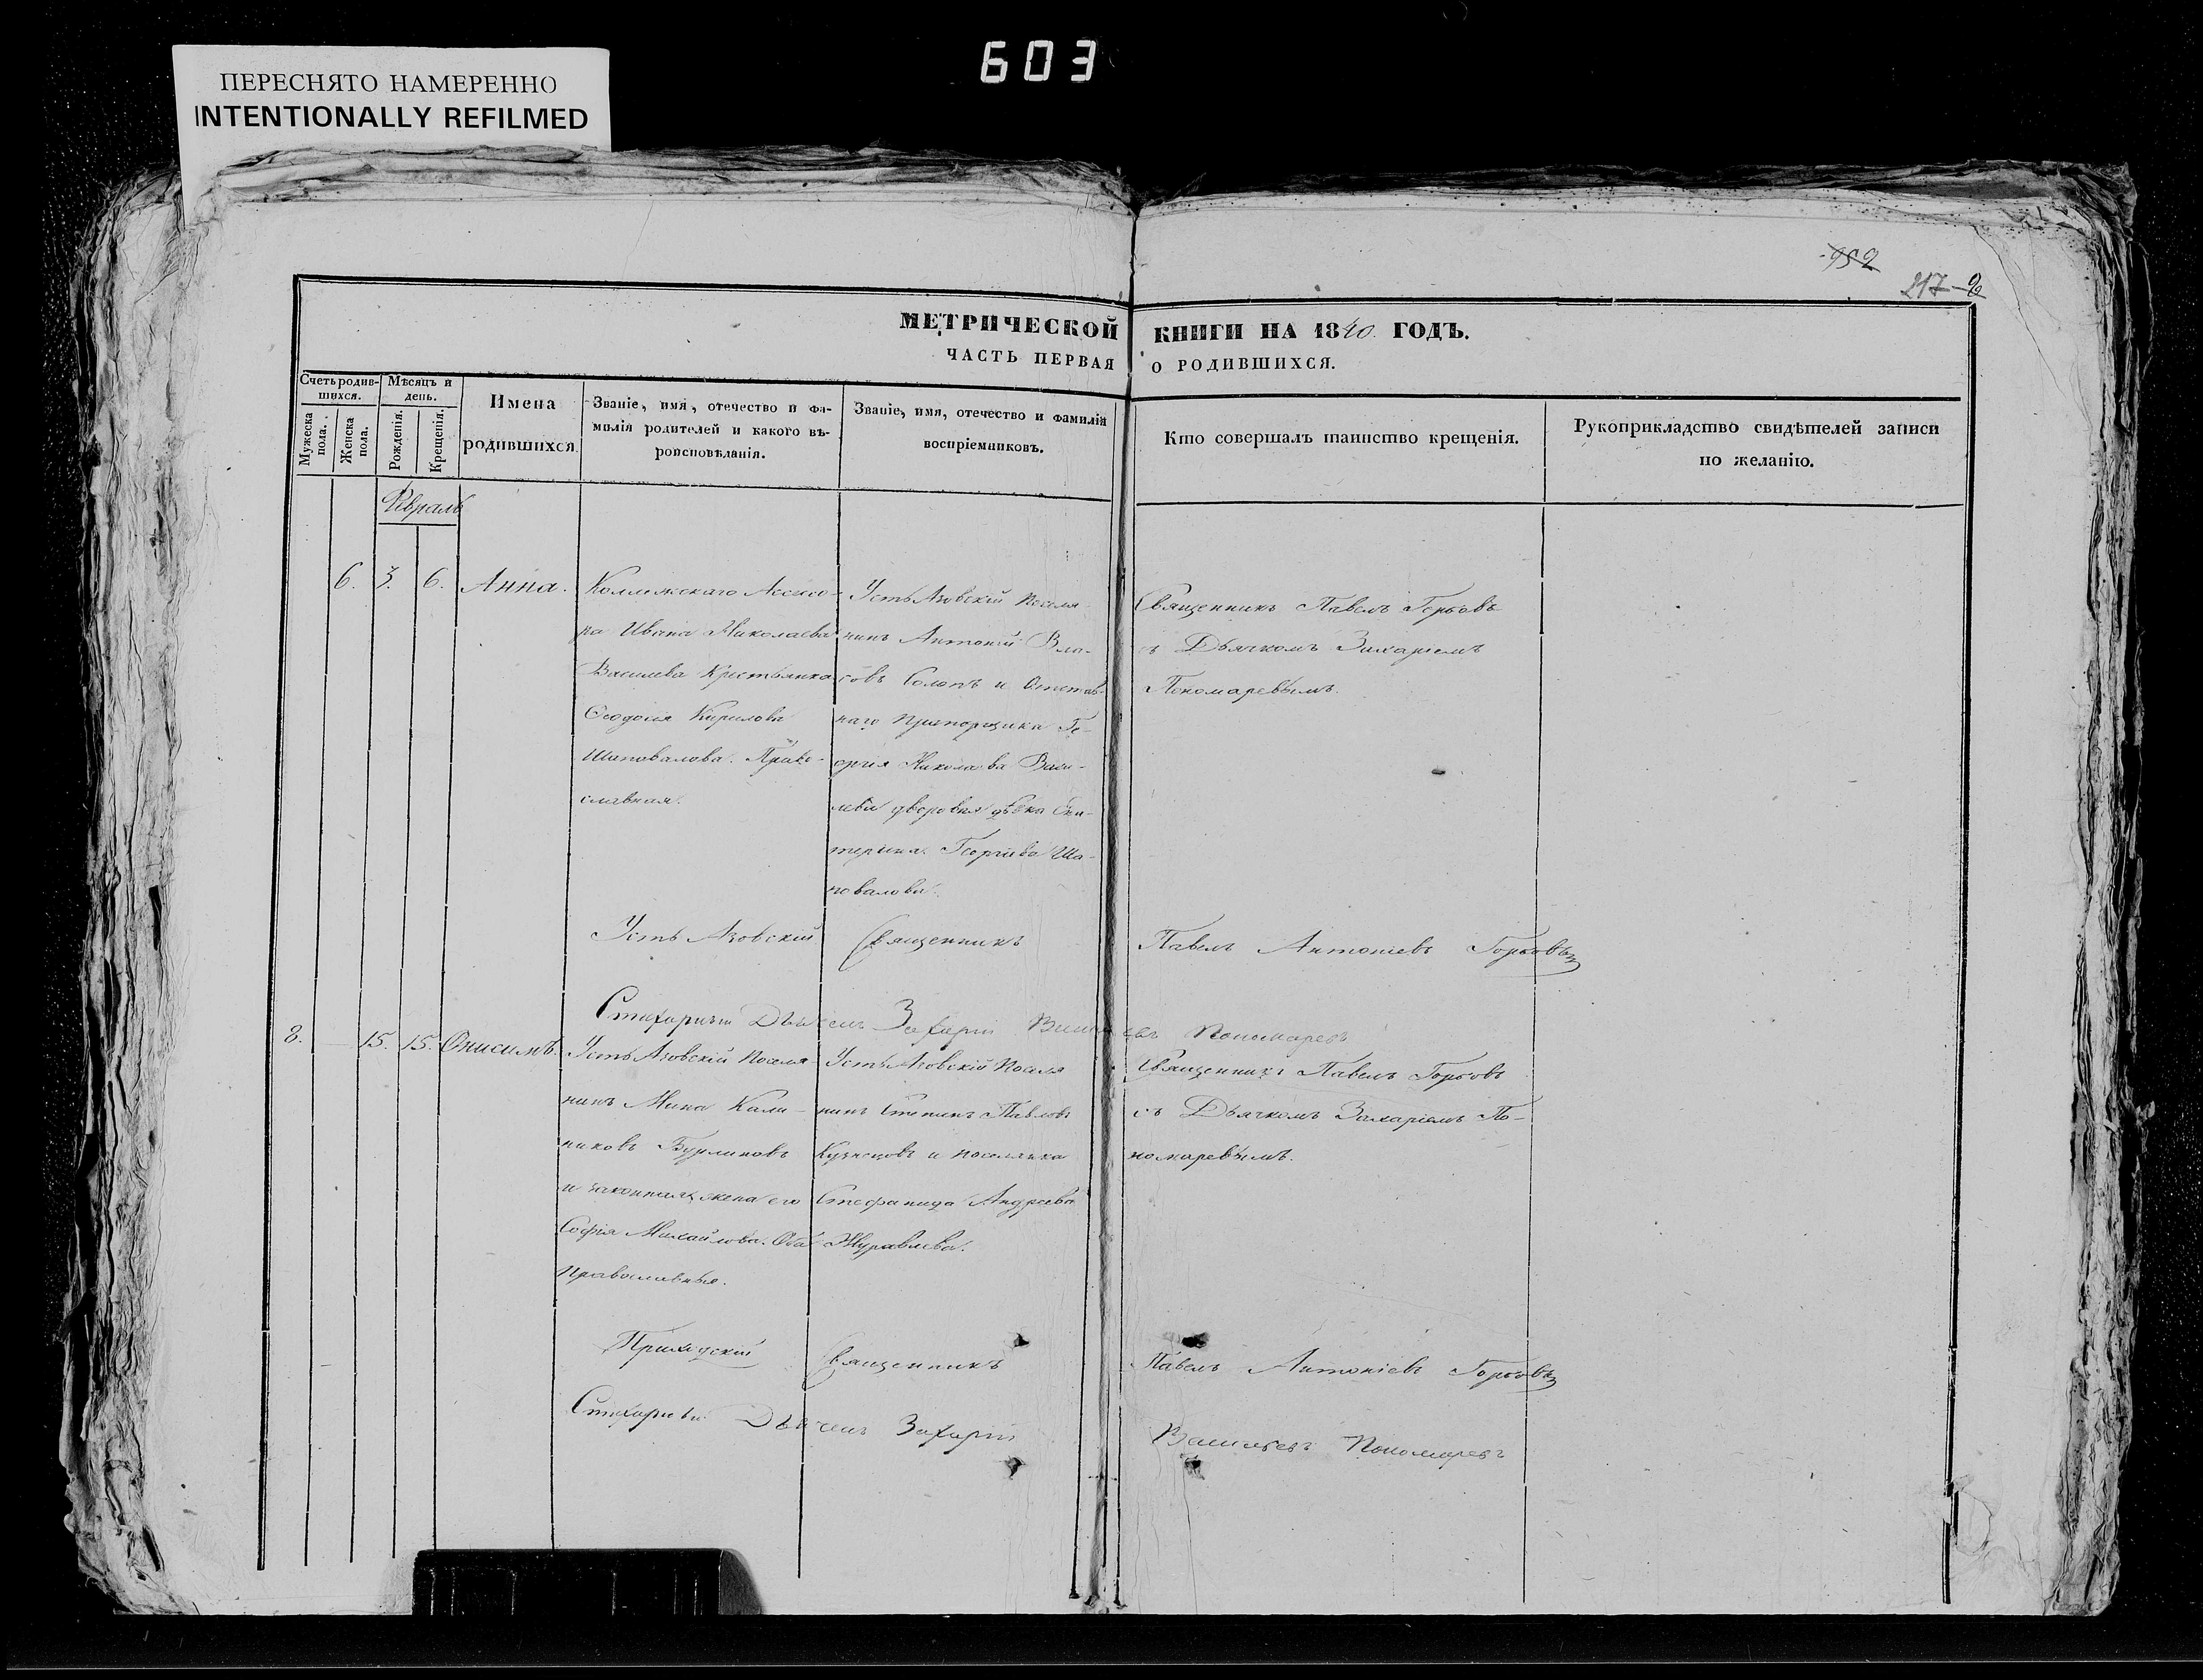 603
ПЕРЕСНЯТО НАМЕРЕННО
INTENTIONALLY REFILMED
952
217-
МЕТРИЧЕСКОЙ КНИГИ НА 1840. ГОДЪ.
ЧАСТЬ ПЕРВАЯ О РОДИВШИХСЯ.
Счетъ родив-
шихся.
Мужеска
пола.
Женска
пола.
Мѣсяцъ и
день.
Рожденія.
Крещенія.
Имена
родившихся.
Званіе, имя, отечество и фа-
милія родителей и какого вѣ-
роисповѣданія.
Званіе, имя, отечество и фамилія
воспріемниковъ.
Кто совершалъ таинство крещенія.
Рукоприкладство свидѣтелей записи
по желанію.
Февраль
6. 3. 6. Анна.
Коллежскаго Ассесо-
ра Ивана Николаева
Василева Крестьянка
Ѳеодосія Кирилова
Шаповалова. Право-
славная.
Усть Азовскій Поселя-
нинъ Антоній Вла-
совъ Солопъ и Отстав-
наго Прапорщика Ге-
оргія Николаева Васи-
лева дворовая дѣвка Ека-
терина Георгіева Ша-
повалова.
Священникъ Павелъ Горбовъ
съ Дьячкомъ Захаріемъ
Пономаревымъ.
Усть Азовскій Священникъ Павелъ Антоніевъ Горбовъ
Стихарный Дьячекъ Захарій Васильевъ Пономаревъ
8. 15. 15. Онисимъ.
Усть Азовскій Поселя-
нинъ Мина Кали-
никовъ Бурлиновъ
и законная жена его
Софія Михайлова. Оба
Православные.
Усть Азовскій Поселя
нинъ Стефанъ Павловъ
Кузнецовъ и поселянка
Стефанида Андреева
Журавлева.
Священникъ Павелъ Горбовъ
съ Дьячкомъ Захаріемъ По-
номаревымъ.
Приходскій Священникъ Павелъ Антоніевъ Горбовъ
Стихарный Дьячекъ Захарій Васильевъ Пономаревъ